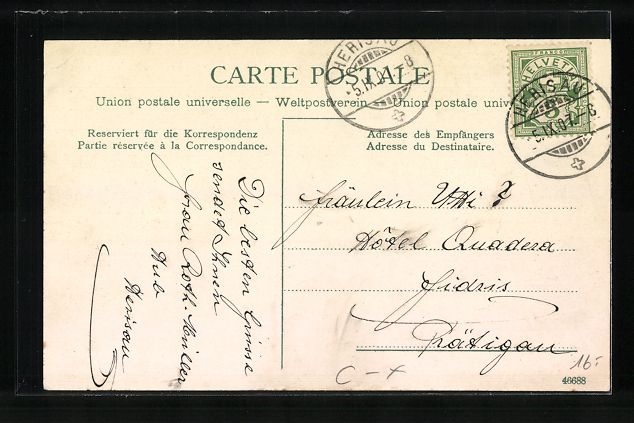 CARTE POSTALE
Union postale universelle — Weltpostverein — Union postale univ
Reserviert für die Korrespondenz
Partie réservée à la Correspondance.
Adresse des Empfängers
Adresse du Destinataire.
HELVETIA
FRANCO
5
HERISAU
5.IX.07.-8
HERISAU
5.IX.07.-8
Die besten Grüsse
sendet Ihnen
Frau Roth-Müller
Hub
Herisau
Fräulein
Hôtel Quadera
Fidris
Prätigau
C-x
16.-
46688